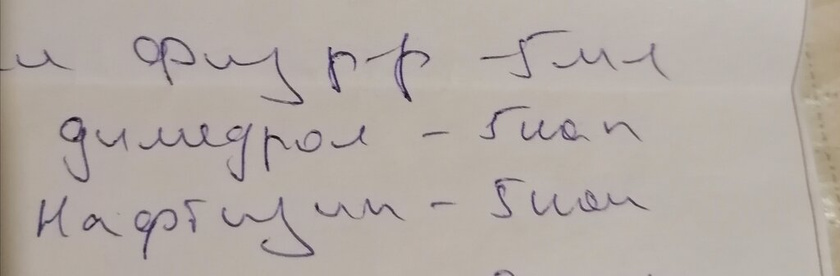 физ р-р - 5 мл
димедрол - 5 кап
Нафтизин - 5 кап